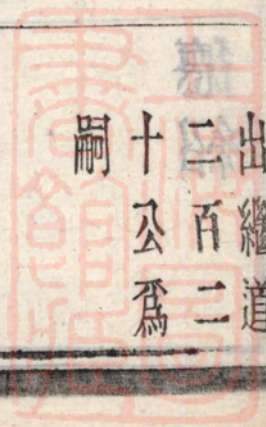 出繼道
二百二
十公爲
嗣